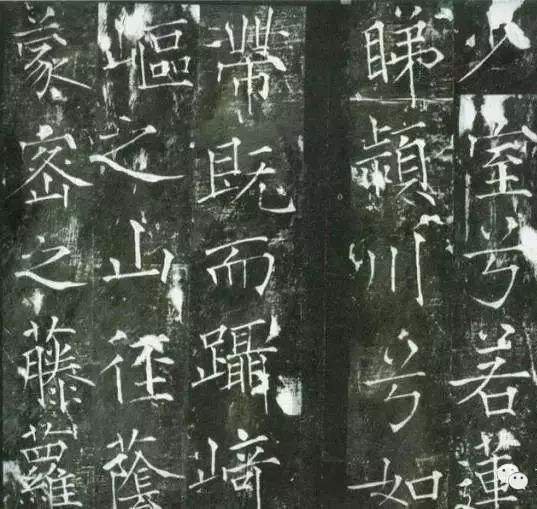 少室兮若蓮
睇潁川兮如
帶既而躡崎
嶇之山徑蔭
蒙密之藤蘿